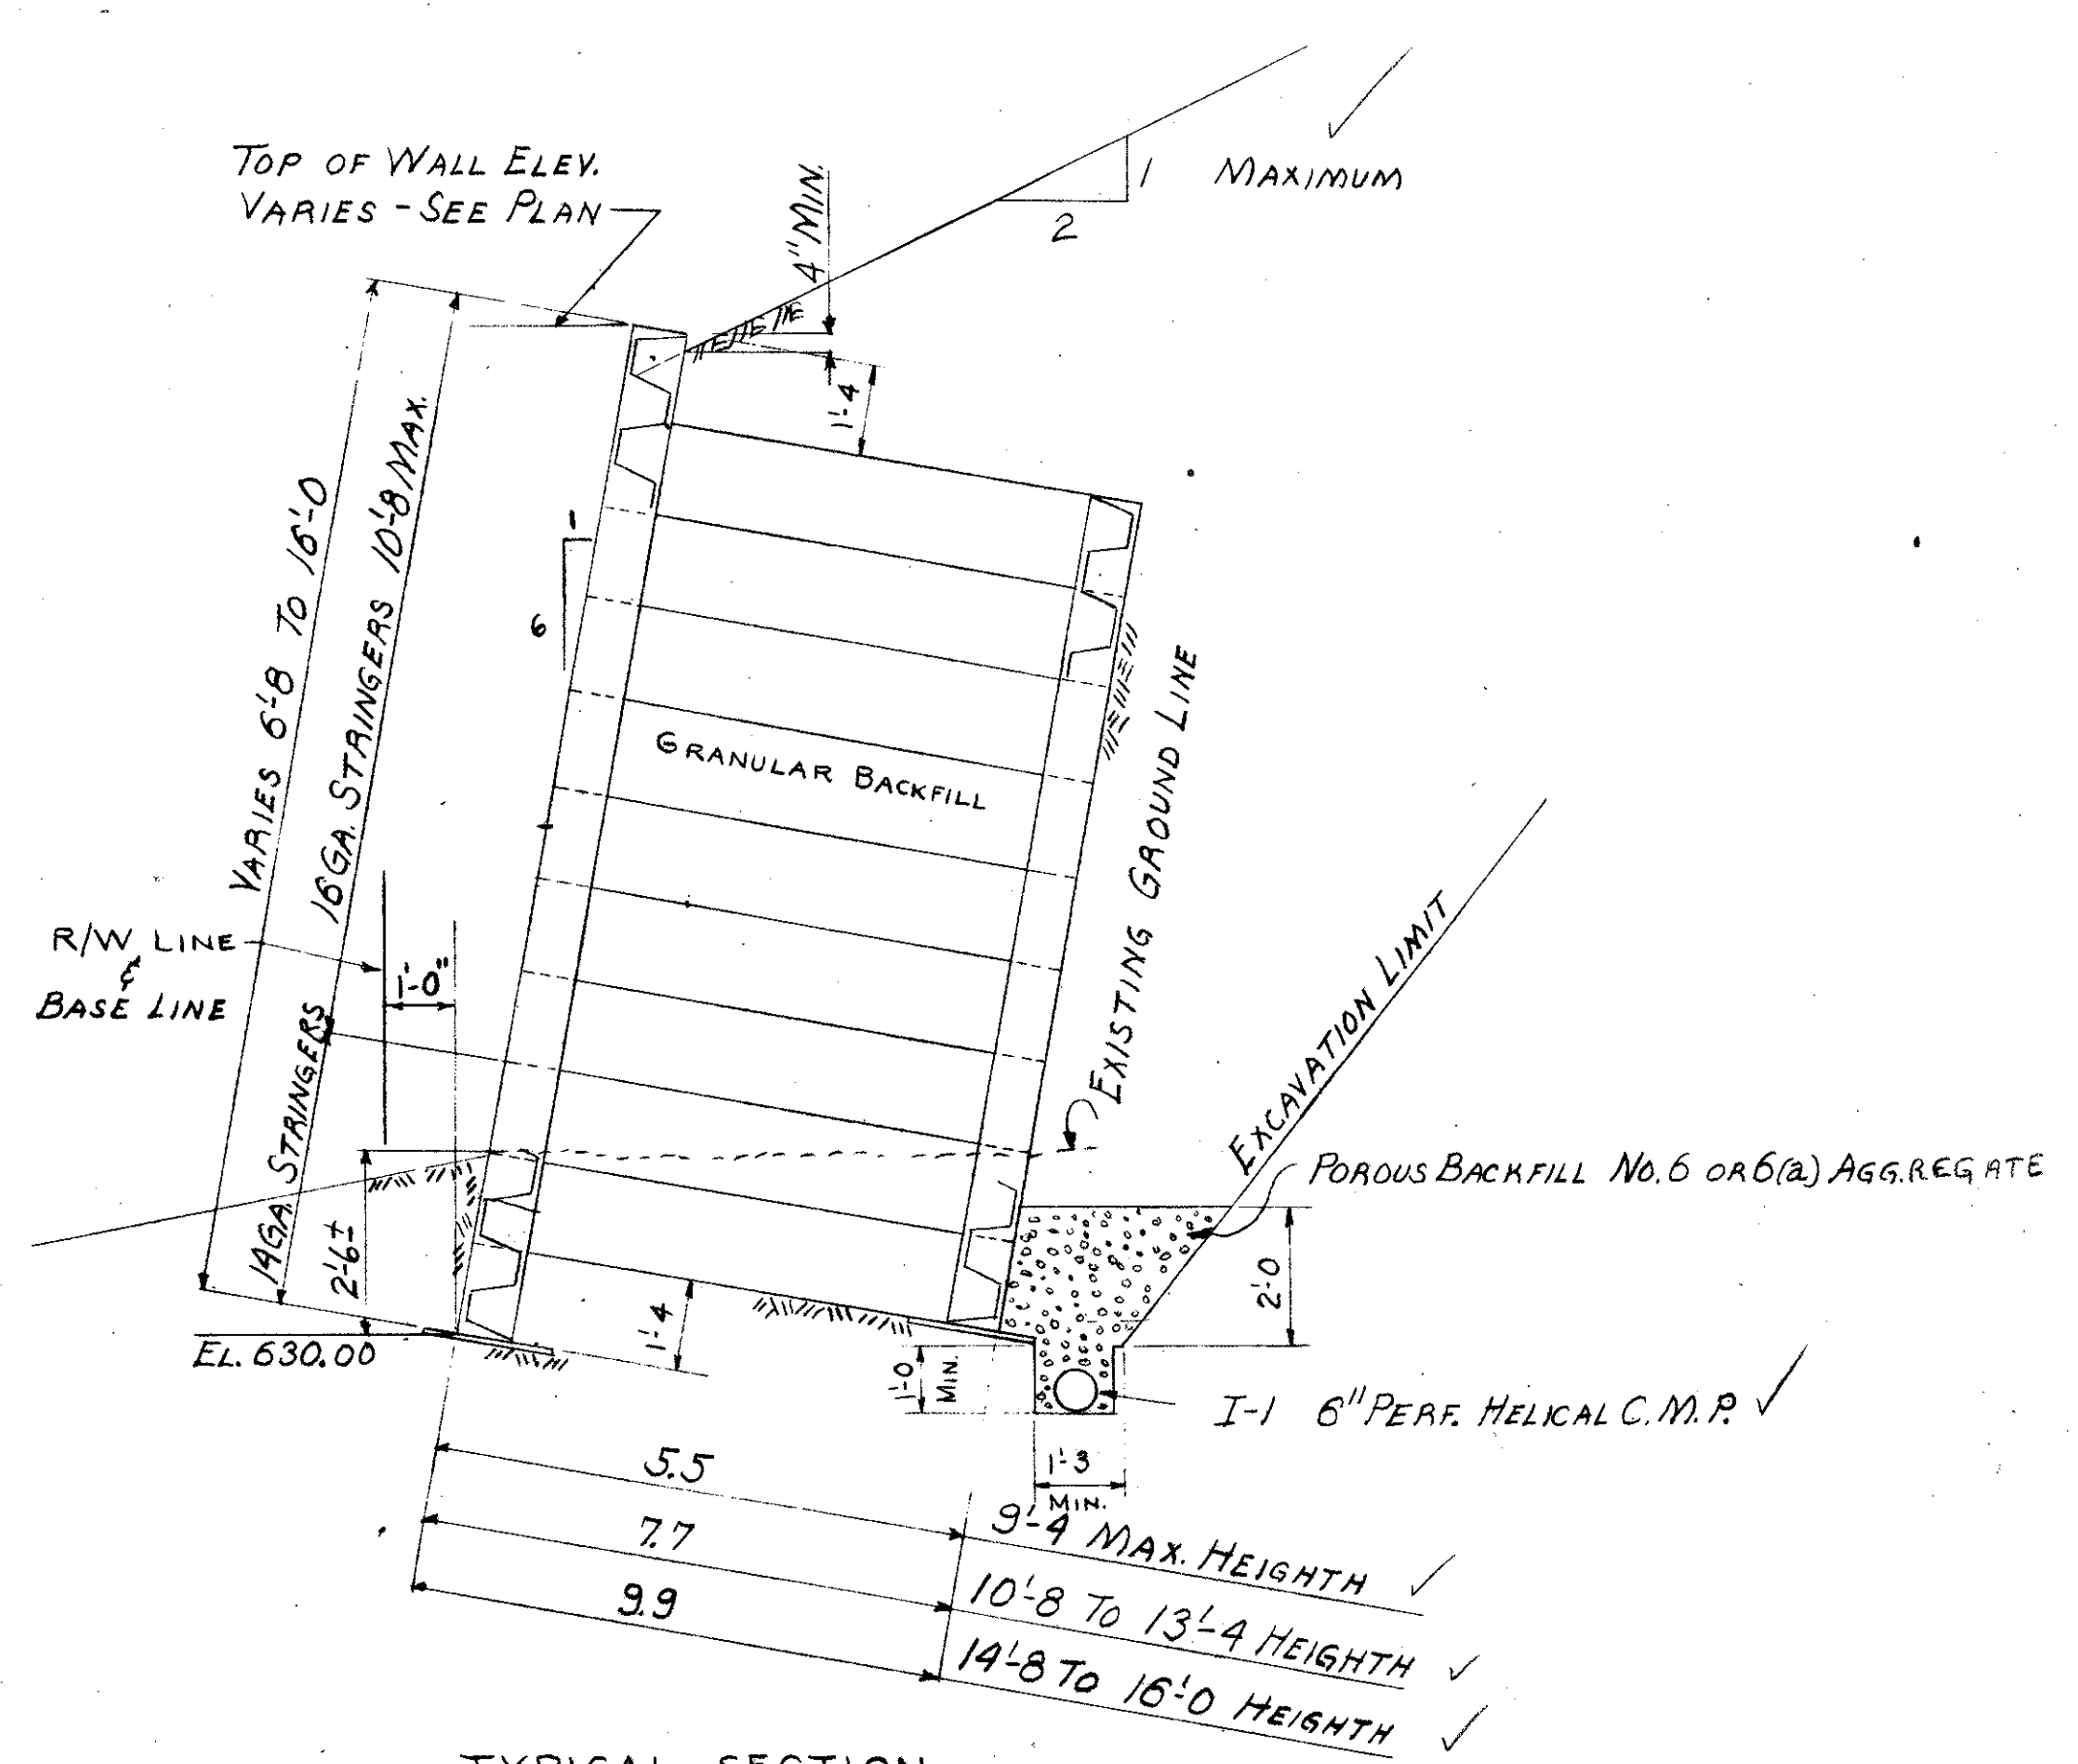 TOP OF WALL ELEV.
VARIES - SEE PLAN
4" MIN.
1
MAXIMUM
2
1'-4
VARIES 6'-8 TO 16'-0
16 GA. STRINGERS 10'-8 MAX.
1
6
GRANULAR BACKFILL
EXISTING GROUND LINE
R/W LINE
&
BASE LINE
1'-0"
14 GA. STRINGERS
EXCAVATION LIMIT
POROUS BACKFILL NO. 6 OR 6(a) AGGREGATE
2'-6±
2'-0
EL. 630.00
1'-4
1'-0
MIN.
I-1 6" PERF. HELICAL C.M.P.
1'-3
MIN.
5.5
9'-4 MAX. HEIGHTH
7.7
10'-8 TO 13'-4 HEIGHTH
9.9
14'-8 TO 16'-0 HEIGHTH
TYPICAL SECTION